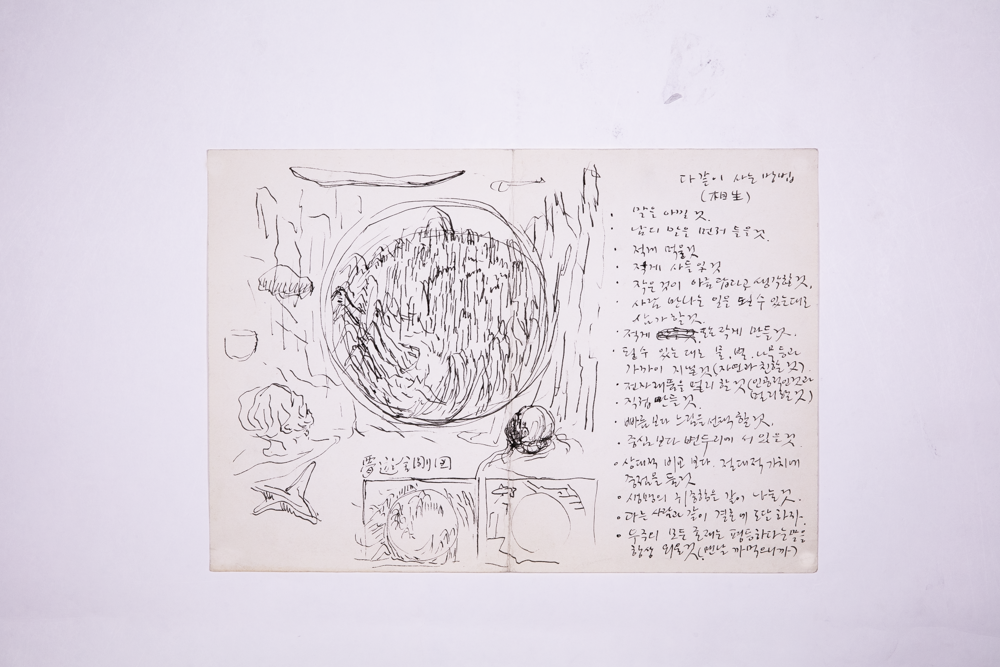 다같이 사는 방법
(相生)
· 말을 아낄 것.
· 남의 말을 먼저 들을 것.
· 적게 먹을 것
· 적게 사들일 것
· 작은 것이 아름답다고 생각할 것.
· 사람 만나는 일을 될 수 있는대로
삼가할 것.
· 적게 만들 것.
· 될 수 있는 대로 물, 별, 나무들과
가까이 지낼 것 (자연과 친할 것)
· 전자제품을 멀리 할 것 (인공적인것과
멀리할 것)
· 직접 만들 것.
· 빠름보다 느림을 선택 할 것.
· 중심보다 변두리에 서 있을 것
· 상대적 비교 보다. 절대적 가치에
중점을 둘 것
· 생명의 귀중함을 같이 나눌 것.
· 다른 사람과 같이 결론에 도달 하자.
· 우주의 모든 존재는 평등하다는 말을
항상 외울 것 (맨날 까먹으니까)
夢遊金剛図